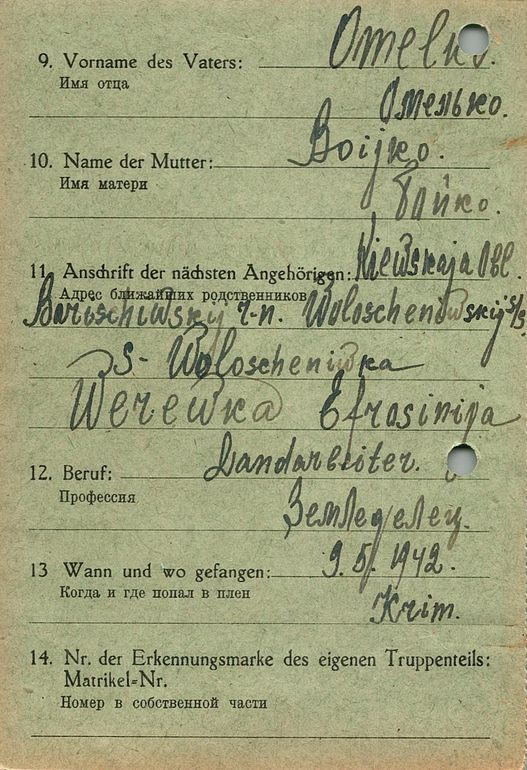 9. Vorname des Vaters: Omelko.
Имя отца
Омелько.
10. Name der Mutter: Boijko.
Имя матери
Бойко.
11. Anschrift der nächsten Angehörigen: Kiewskaja Obl.
Адрес ближайших родственников
Barischiwskij r-n. Woloscheniwskij s/s
s- Woloscheniwka
Werewka Efrosinija
12. Beruf: Landarbeiter.
Профессия
Земледелец.
13 Wann und wo gefangen: 9.5.1942.
Когда и где попал в плен
Krim.
14. Nr. der Erkennungsmarke des eigenen Truppenteils:
Matrikel-Nr.
Номер в собственной части